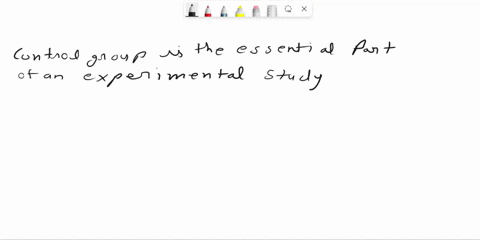 control group is the essential Part
of an experimental study